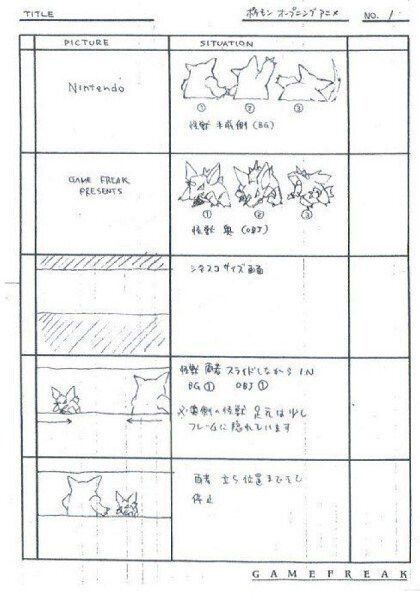 TITLE
ポケモン オープニングアニメ
NO. 1
PICTURE
SITUATION
Nintendo
① ② ③
怪獣 手前側 (BG)
GAME FREAK
PRESENTS
① ② ③
怪獣 奥 (OBJ)
シネスコサイズ画面
怪獣 両者 スライドしながら IN
BG① OBJ①
※奥側の怪獣 足元は少し
フレームに隠れています
両者 立ち位置まできて
停止
GAMEFREAK